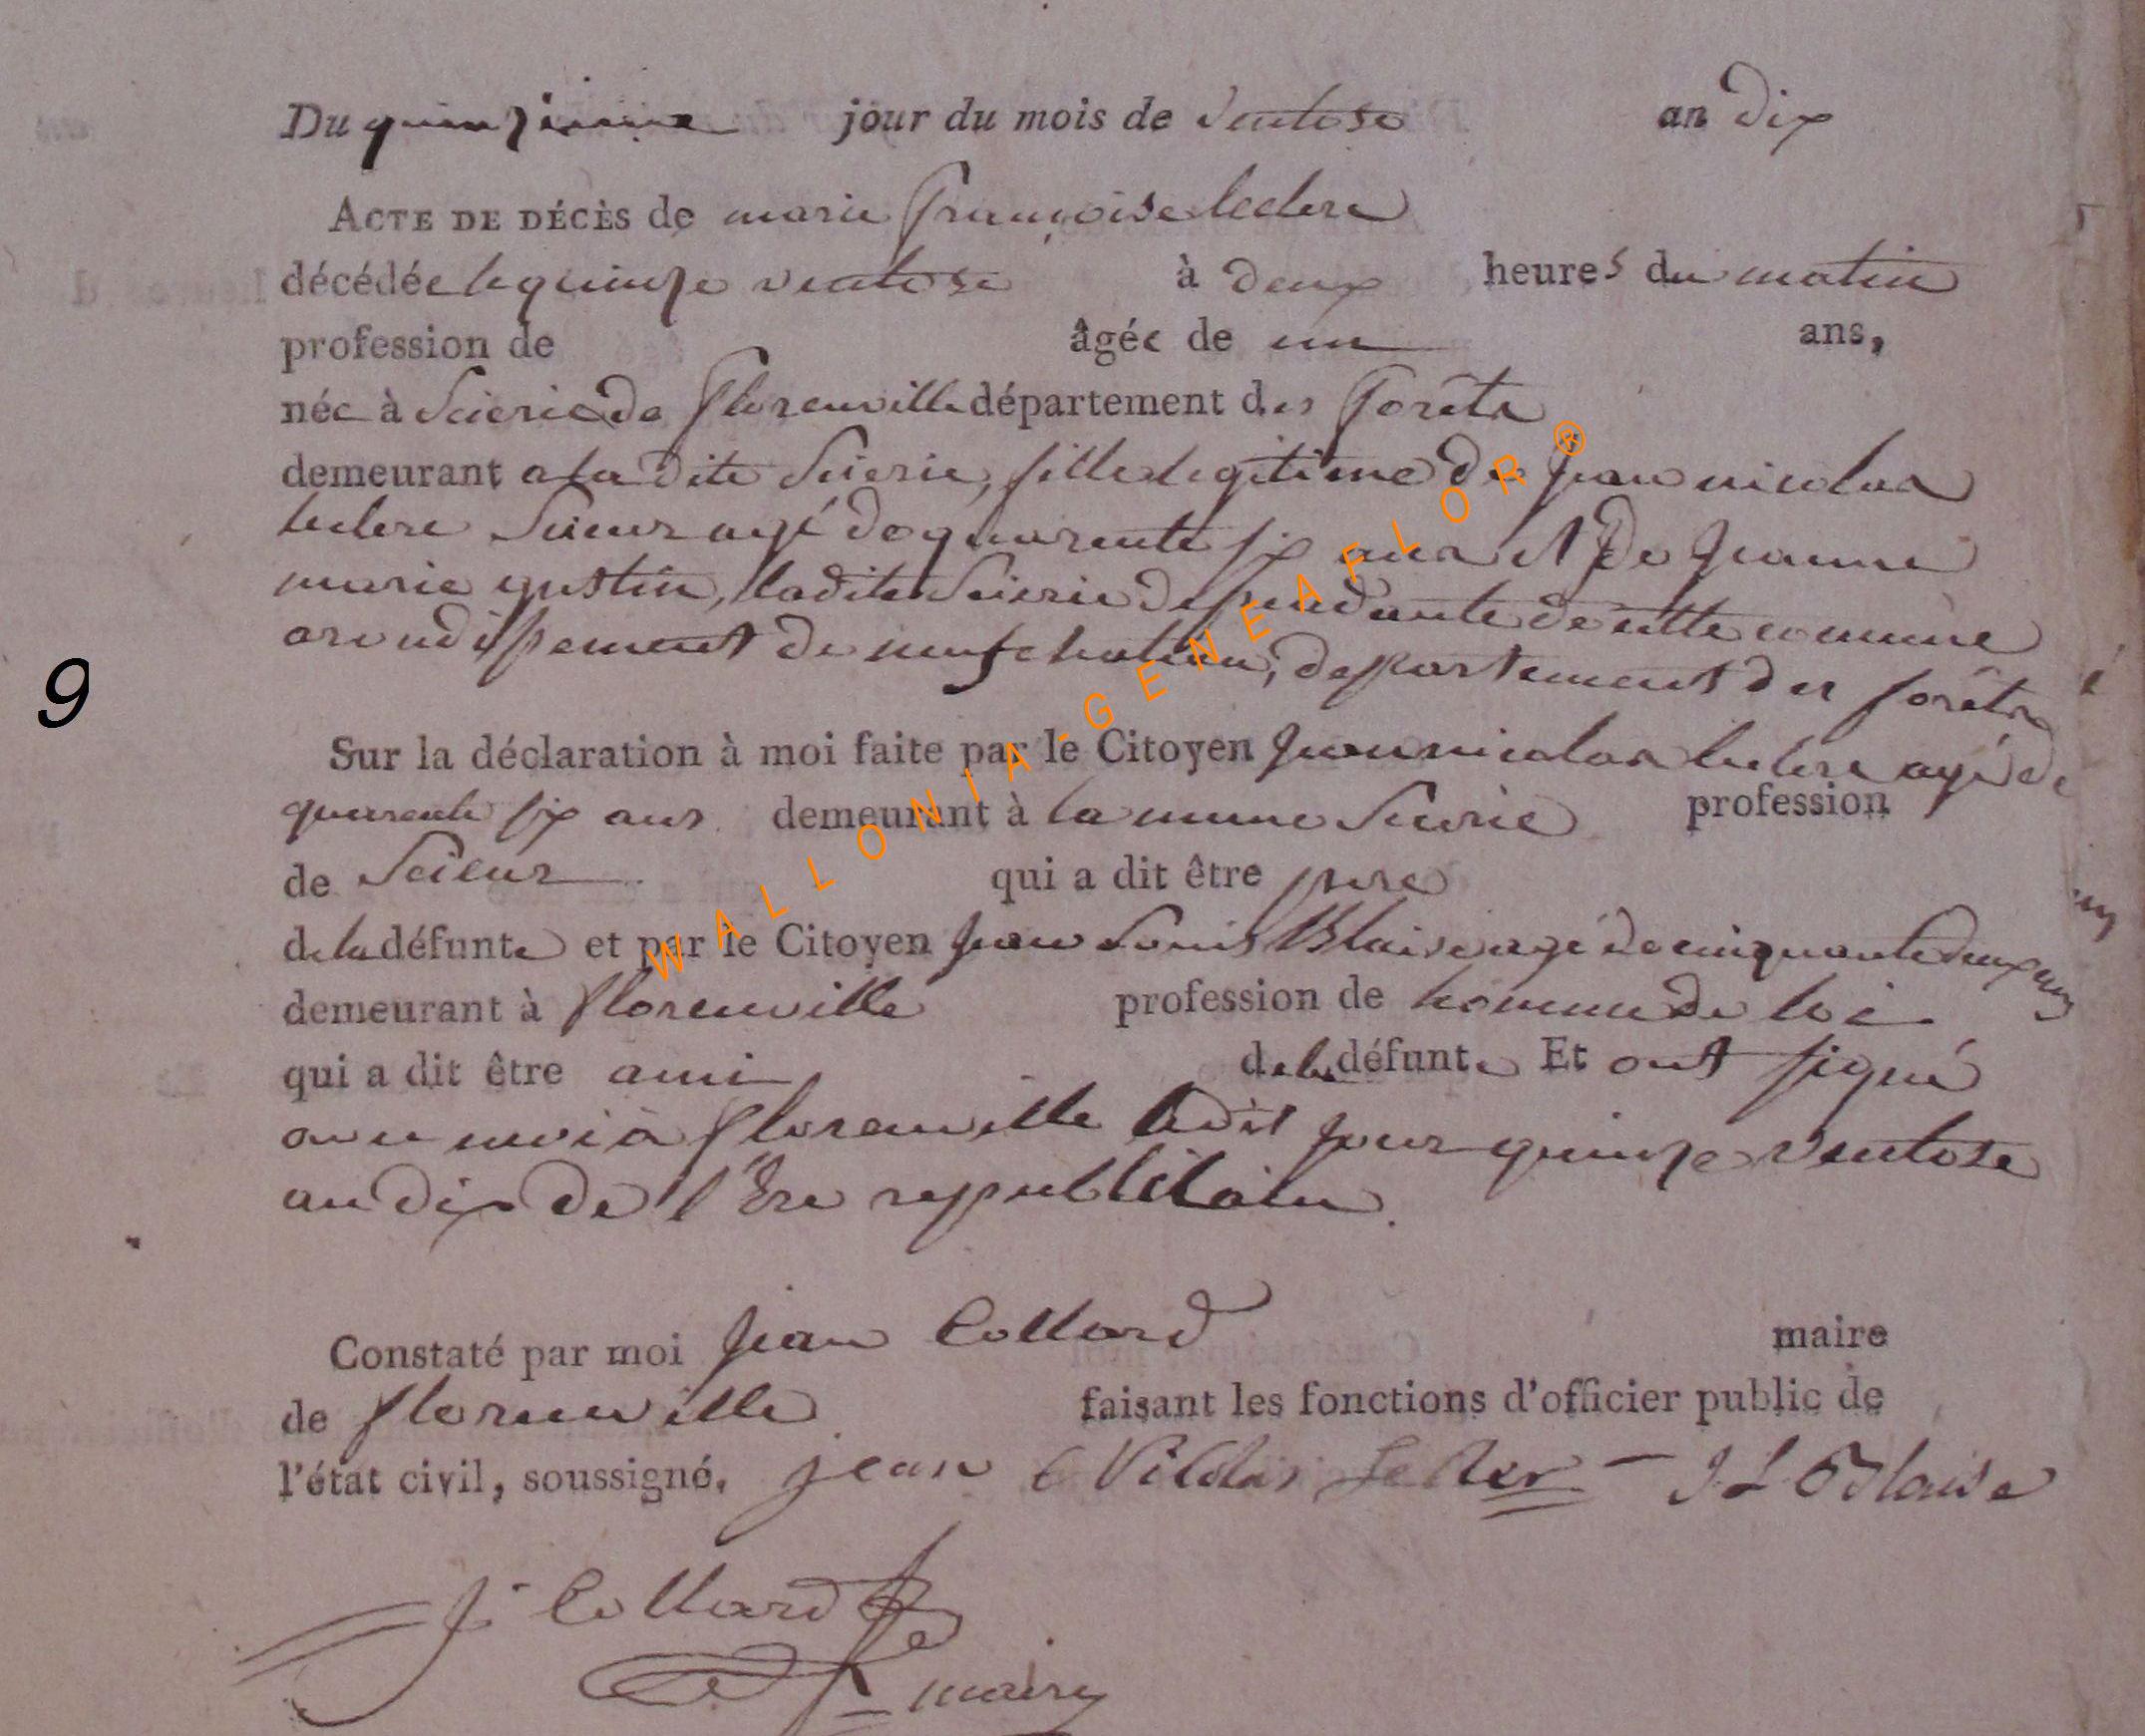 Du quinzieme jour du mois de Ventose an Dix
ACTE DE DÉCÈS de marie françoise leclere
décédée le quinze ventose à deux heures du matin
profession de âgée de un ans,
née à Scierie de florenville département des forêts
demeurant a la dite Scierie, fille legitime de jean nicolas
leclere Scieur agé de quarente six ans et de jeanne
marie gustin, ladite Scierie dependante de cette commune
arondissement de neufchateau, departement des forêts
9
Sur la déclaration à moi faite par le Citoyen jean nicolas leclere agé de
quarente six ans demeurant à la meme Scierie profession
de Scieur qui a dit être pere
de la défunte et par le Citoyen jean Louis Blaise agé de cinquante deux ans
demeurant à florenville profession de homme de loi
qui a dit être ami de la défunte Et ont signé
avec moi à florenville ledit jour quinze Ventose
an dix de l'Ere republicaine
Constaté par moi jean Collard maire
de florenville faisant les fonctions d'officier public de
l'état civil, soussigné. jean Nicolas Lecler J L Blaise
J. Collard
maire
WALLONIA-GENEAFLOR®